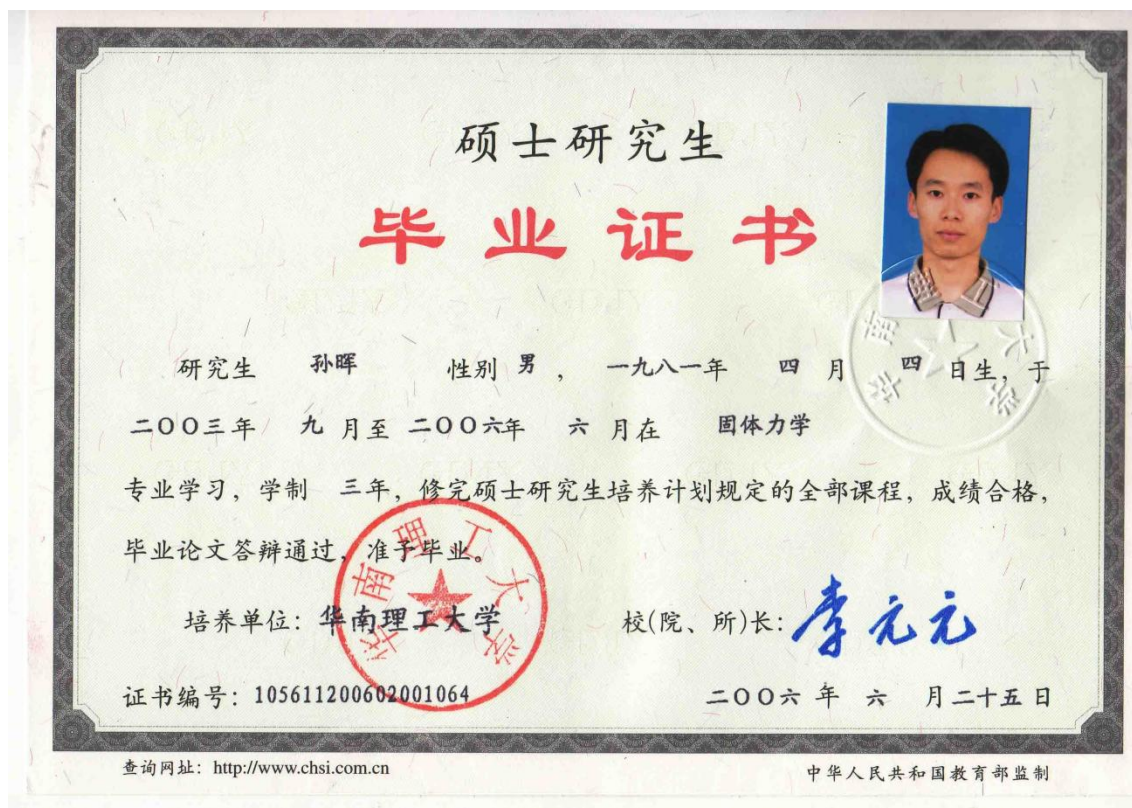 硕士研究生
毕业证书
研究生 孙晖 性别 男 , 一九八一年 四 月 四 日生, 于
二〇〇三年 九 月至 二〇〇六年 六 月在 固体力学
专业学习, 学制 三年, 修完硕士研究生培养计划规定的全部课程, 成绩合格,
毕业论文答辩通过, 准予毕业。
培养单位: 华南理工大学 校(院、所)长: 李元元
华南理工大学
证书编号: 105611200602001064 二〇〇六 年 六 月二十五日
查询网址: http://www.chsi.com.cn 中华人民共和国教育部监制
华南理工大学